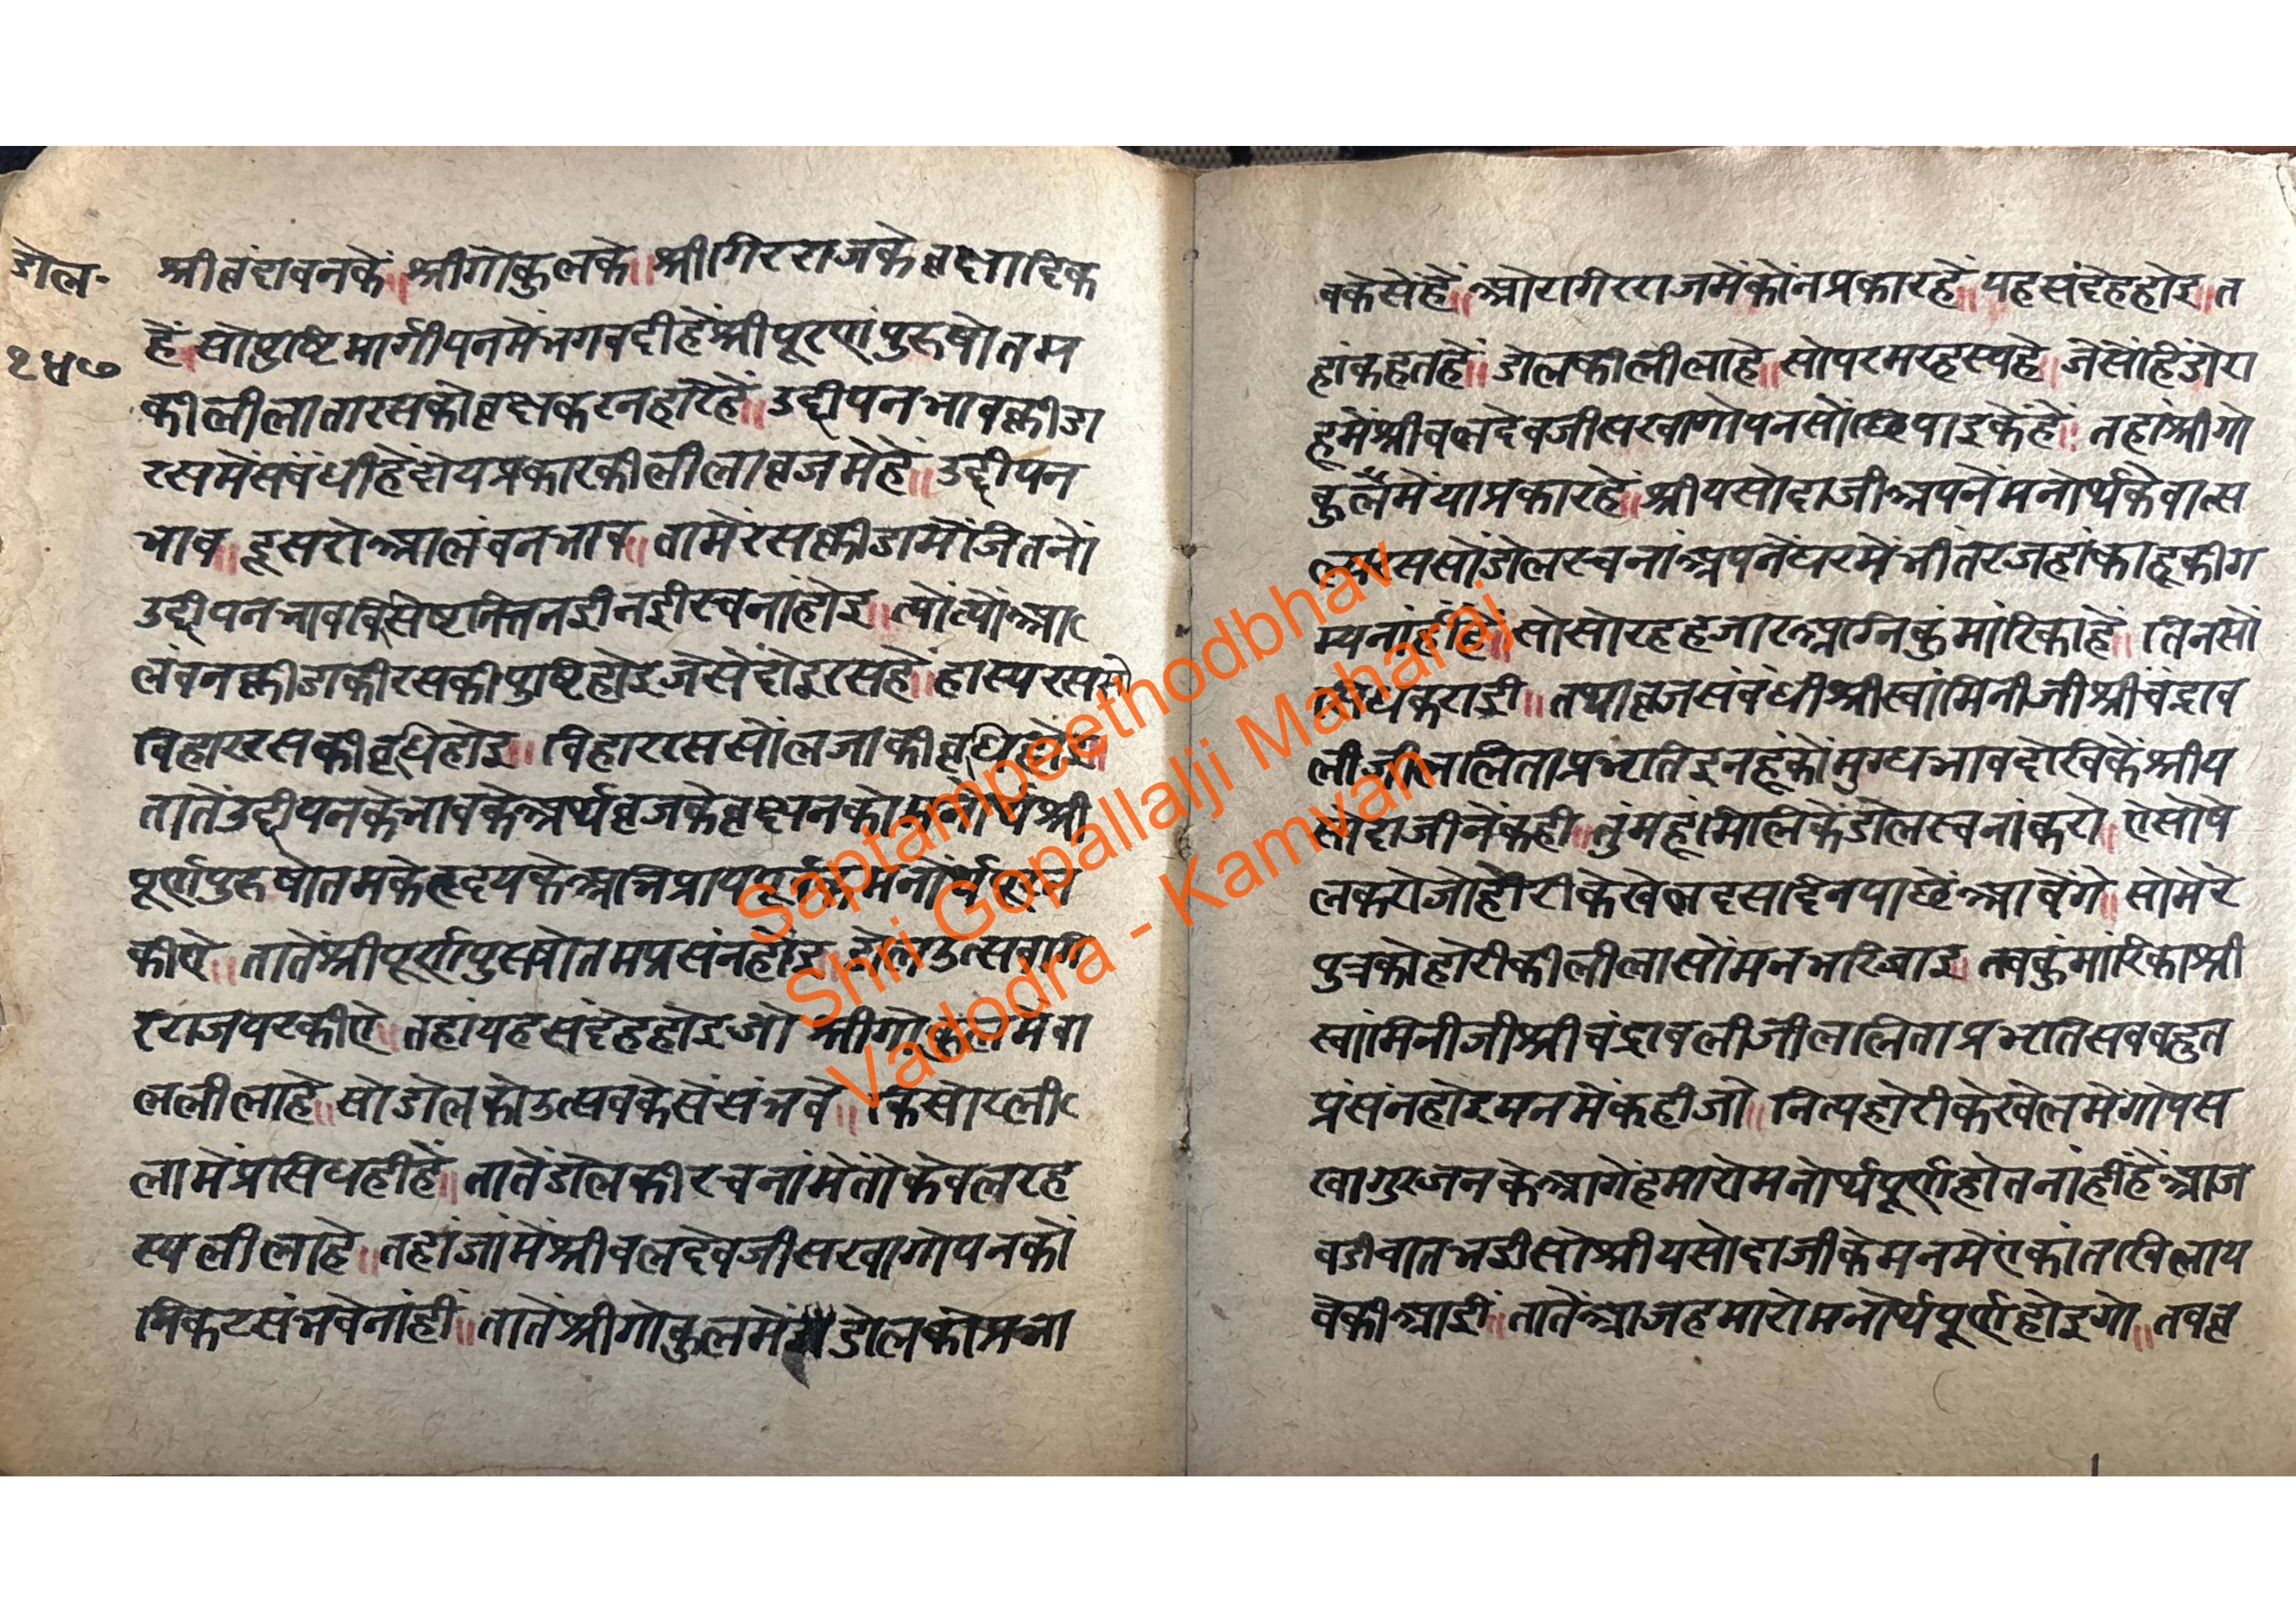 डोल॰
१५७
श्रीवृंदावनकें॥ श्रीगोकुलके॥ श्रीगिरराजके वृक्षादिक
हें सो पुष्टिमार्गीपनमें भगवदी हें श्रीपूरणपुरुषोतम
की लीलातारसको वृक्षकरनहारे हें॥ उद्दीपनभावक्रीडा
रसमें संबंधी हें दोय प्रकारकी लीला व्रजमें हें॥ उद्दीपन
भाव॥ दूसरो आलंबनभाव॥ तामें रसक्रीडामों जितनों
उद्दीपनभाव विसेष नित्तनई नई रचनां होइ॥ त्यों त्यों आ
लंबनक्रीडाकी रसकी पुष्टि होइ जेसें दोइ रस हे॥ हास्यरससों
विहाररसकी वृधि होइ॥ विहाररससों लजाकी वृधि होइ॥
तातें उद्दीपनके भावके अर्थ व्रजके वृक्षनको मनोर्थ श्री
पूर्णपुरुषोतमके हृदयके अभिप्राय पूर्वक मनोर्थ पूरन
कीए॥ तातें श्रीपूर्णपुरुषोतम प्रसंन होइ॥ डोल उत्सव गि
रराज पर कीए॥ तहां यह संदेह होइ जो श्रीगोकुलमें बा
ललीला हे॥ सो डोलको उत्सव केसें संभवे॥ किसोरली
लामें प्रसिध ही हें॥ तातें डोलकी रचनांमें तो केवल रह
स्य लीला हे॥ तहां जांमें श्रीबलदेवजी सखा गोपनको
निकट संभवे नांही॥ तातें श्रीगोकुलमें डोलको प्रभा
व केसें हें॥ ओर गिरराजमें कोंन प्रकार हें॥ यह संदेह होइ॥ त
हां कहत हें॥ डोलकी लीला हे॥ सो परम रहस्य हे॥ जेसें हिंडोरा
हूमें श्रीबलदेवजी सखा गोपनसों छिपाइकें हें॥ तहां श्रीगो
कुलमें या प्रकार हे॥ श्रीयसोदाजी अपनें मनोर्थके वात्स
ल्यरससों डोल रचनां अपनें घरमें भीतर जहां काहूकी ग
म्य नांही हे॥ सो सोरह हजार अग्निकुंमारिका हें॥ तिनसों
सिध कराई॥ तथा व्रजसंबंधी श्रीस्वांमिनीजी श्रीचंद्राव
लीजी ललिता प्रभृति इनहूंकों मुग्धभाव देखिकें श्रीय
सोदाजीनें कही॥ तुंमहूं मिलिकें डोल रचनां करो॥ ऐसो षे
ल करो जो होरीके खेल दस दिन पाछें आवेंगे॥ सो मेरे
पुत्रको होरीकी लीलासों मन भरि जाइ॥ तब कुंमारिका श्री
स्वांमिनीजी श्रीचंद्रावलीजी ललिता प्रभृति सब बहुत
प्रंसंन होइ मनमें कही जो॥ नित्य होरीके खेलमें गोप स
खा गुरजनके आगें हमारो मनोर्थ पूर्ण होत नांहीं हें आज
बडी बात भई सो श्रीयसोदाजीके मनमें एकांत खिलाय
वेकी आई॥ तातें आज हमारो मनोर्थ पूर्ण होइगो॥ तब व्र
Saptampeethodbhav
Shri Gopallalji Maharaj
Vadodra - Kamvan